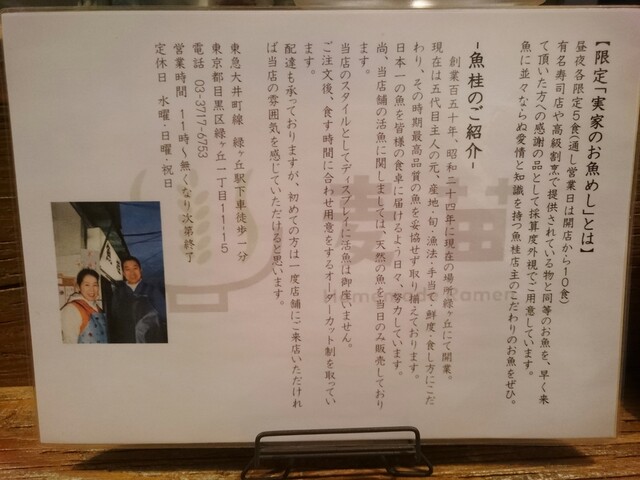 【限定「実家のお魚めし」とは】
昼夜各限定5食(通し営業日は開店から10食)
有名寿司店や高級割烹で提供されている物と同等のお魚を、早く来
て頂いた方への感謝の品として採算度外視でご用意しています。
魚に並々ならぬ愛情と知識を持つ魚桂店主のこだわりのお魚をぜひ。
-魚桂のご紹介-
創業百五十年、昭和二十四年に現在の場所緑ヶ丘にて開業。
現在は五代目主人の元、産地・旬・漁法・手当て・鮮度・食し方にこだ
わり、その時期最高品質の魚を妥協せず取り揃えております。
日本一の魚を皆様の食卓に届けるよう日々、努力しています。
尚、当店舗の活魚に関しましては、天然の魚を当日のみ販売しており
ます。
当店のスタイルとしてディスプレイに活魚は御座いません。
ご注文後、食す時間に合わせ用意をするオーダーカット制を取ってい
ます。
配達も承っておりますが、初めての方は一度店舗にご来店いただけれ
ば当店の雰囲気を感じていただけると思います。
東急大井町線 緑ヶ丘駅下車徒歩一分
東京都目黒区緑ヶ丘一丁目11-15
電話 03-3717-6753
営業時間 11時~無くなり次第終了
定休日 水曜・日曜・祝日
Ramen